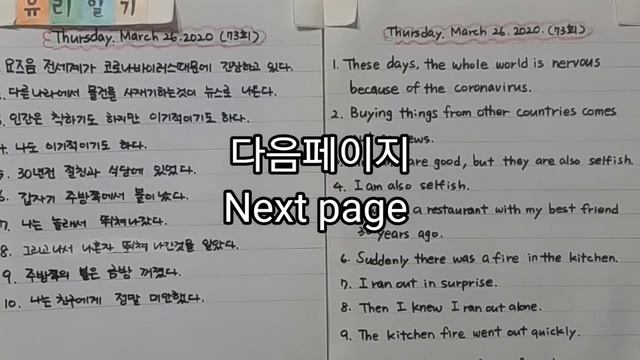 유리일기
Thursday. March 26. 2020 (73회)
요즈음 전세계가 코로나바이러스때문에 긴장하고 있다.
다른나라에서 물건을 사재기하는것이 뉴스로 나온다.
인간은 착하기도 하지만 이기적이기도 하다.
4. 나도 이기적이기도 하다.
5. 30년전 절친과 식당에 있었다.
6. 갑자기 주방쪽에서 불이 났다.
7. 나는 놀래서 뛰쳐나갔다.
8. 그리고나서 나혼자 뛰쳐 나간것을 알았다.
9. 주방쪽의 불은 금방 꺼졌다.
10. 나는 친구에게 정말 미안했다.
Thursday. March 26. 2020. (73회)
1. These days, the whole world is nervous
because of the coronavirus.
2. Buying things from other countries comes
news.
are good, but they are also selfish.
4. I am also selfish.
a restaurant with my best friend
years ago.
6. Suddenly there was a fire in the kitchen.
7. I ran out in surprise.
8. Then I knew I ran out alone.
9. The kitchen fire went out quickly.
다음페이지
Next page